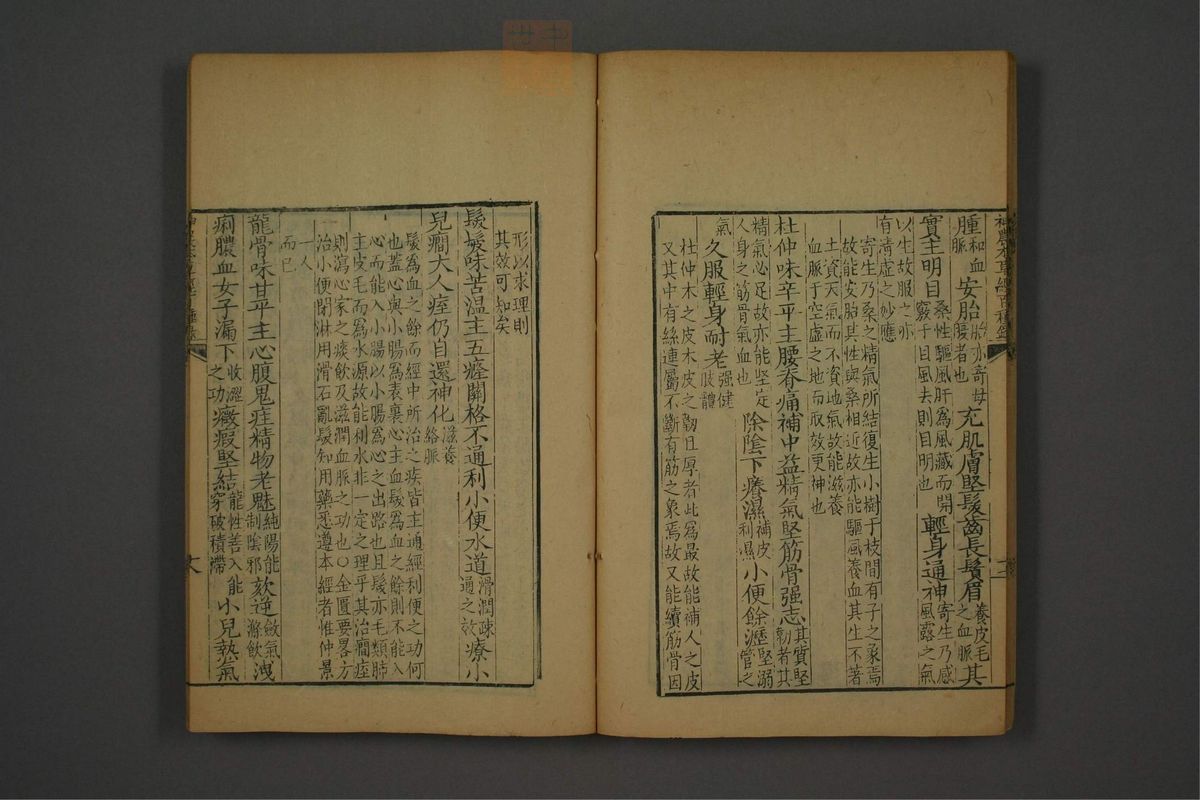 神農本草經百種錄
腫和血脈安胎胎亦寄母腹者也充肌膚堅髮齒長鬚眉養皮毛之血脈其
實主明目桑性驅風肝為風藏而開竅于目風去則目明也輕身通神寄生乃感風露之氣
以生故服之亦有清虛之妙應
寄生乃桑之精氣所結復生小樹于枝間有子之象焉
故能安胎其性與桑相近故亦能驅風養血其生不著
土資天氣而不資地氣故能滋養
血脈于空虛之地而取效更神也
杜仲味辛平主腰脊痛補中益精氣堅筋骨强志其質堅韌者其
精氣必足故亦能堅定人身之筋骨氣血也除陰下癢濕補皮利濕小便餘瀝堅溺管之
氣久服輕身耐老强健肢體
杜仲木之皮木皮之韌且厚者此為最故能補人之皮
又其中有絲連屬不斷有筋之象焉故又能續筋骨因
形以求理則
其效可知矣
髮髲味苦温主五癃關格不通利小便水道滑潤疎通之效療小
兒癇大人痓仍自還神化滋養絡脈
髮為血之餘而經中所治之疾皆主通經利便之功何
也蓋心與小腸為表裏心主血髮為血之餘則不能入
心而能入小腸以小腸為心之出路也且髮亦毛類肺
主皮毛而為水源故能利水非一定之理乎其治癇痓
則瀉心家之痰飲及滋潤血脈之功也○金匱要畧方
治小便閉淋用滑石亂髮知用藥悉遵本經者惟仲景
一人
而已
龍骨味甘平主心腹鬼疰精物老魅純陽能制陰邪欬逆斂氣滌飲洩
痢膿血女子漏下收澀之功癥瘕堅結龍性善入能穿破積滯小兒熱氣